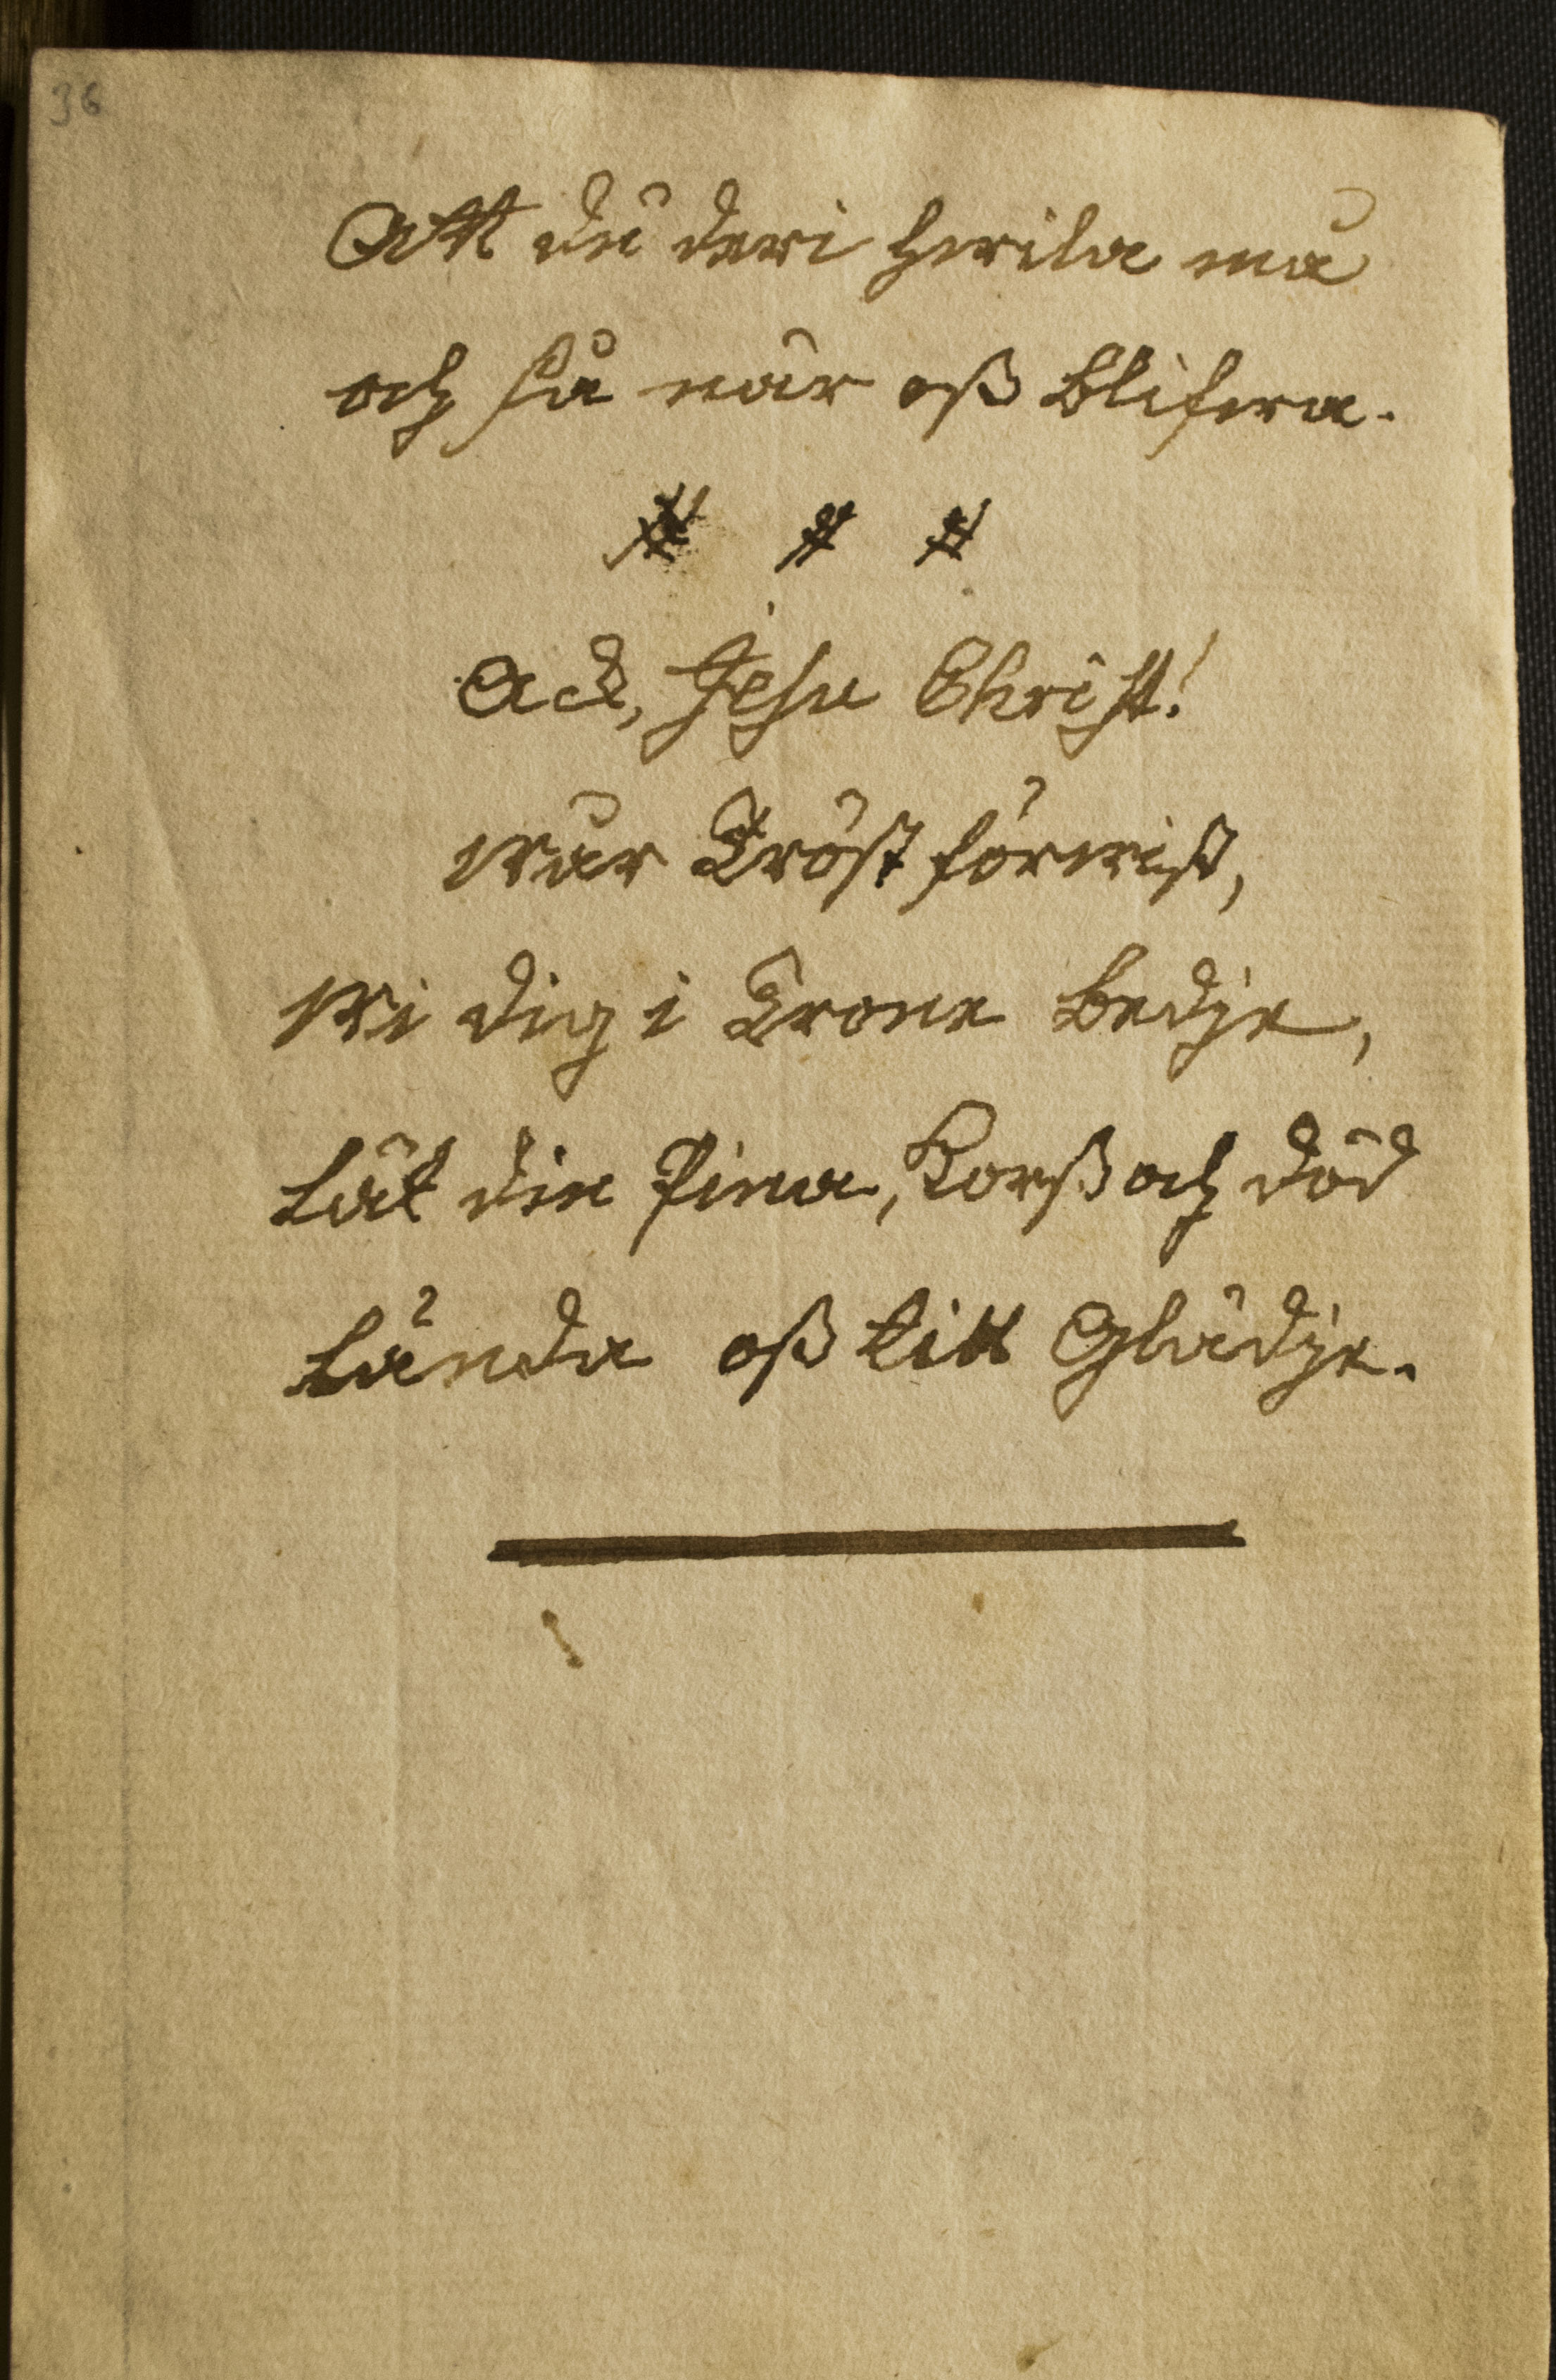 36
Att du deri hwila må
och så när oß blifwa.
# # #
Ack, Jesu Christ!
Wår Tröst förwist,
Wi dig i Trone bedje,
Låt din Pina, Korß och död
Lända oß till Glädje.